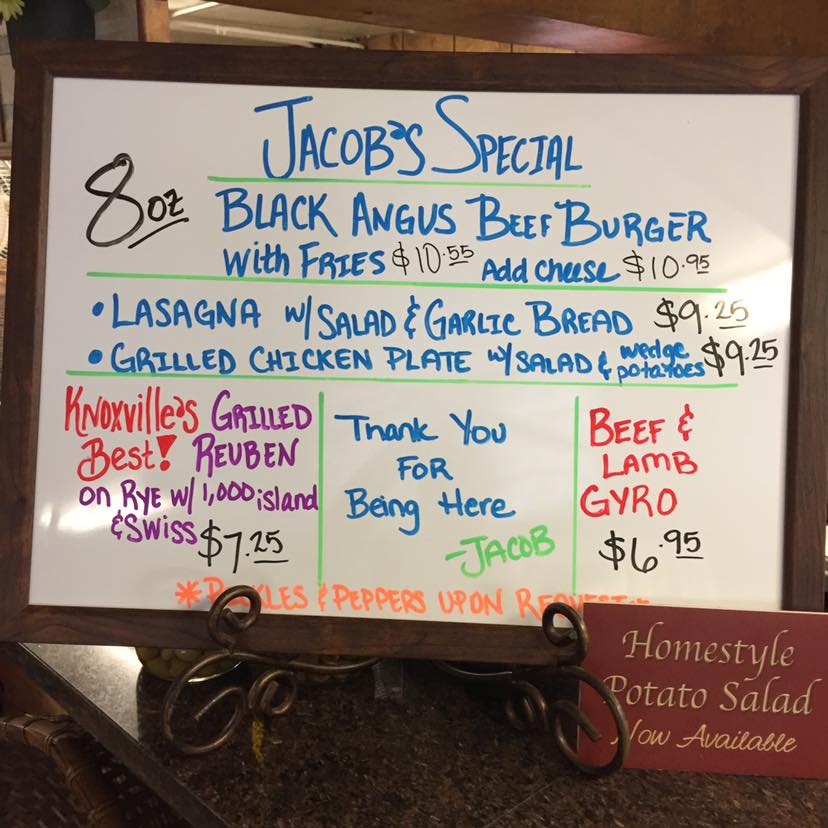 JACOB'S SPECIAL
8oz BLACK ANGUS BEEF BURGER
With FRIES $10.55 Add Cheese $10.95
• LASAGNA W/SALAD & GARLIC BREAD $9.25
• GRILLED CHICKEN PLATE W/SALAD & wedge potatoes $9.25
KNOXVILLE'S GRILLED
BEST! REUBEN
on RYE W/ 1,000 island
& SWISS $7.25
Thank You
FOR
Being Here
-JACOB
BEEF &
LAMB
GYRO
$6.95
* PICKLES & PEPPERS UPON REQUEST
Homestyle
Potato Salad
Now Available